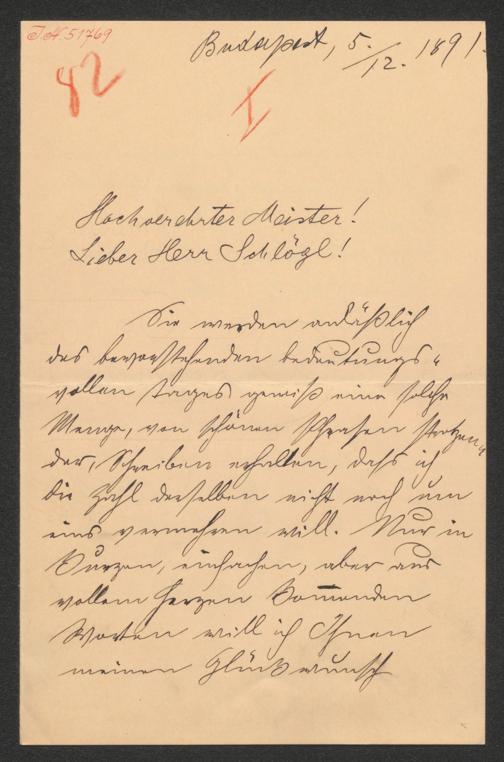 J.N. 51769
82
I
Budapest, 5./12. 1891.
Hochverehrter Meister!
Lieber Herr Schlögl!
Sie werden anläßlich
des bevorstehenden bedeutungs-
vollen Tages gewiß eine solche
Menge, von schönen Phrasen strotzen-
der, Schreiben erhalten, daß ich
die Zahl derselben nicht noch um
eins vermehren will. Nur in
kurzen, einfachen, aber aus
vollem Herzen kommenden
Worten will ich Ihnen
meinen Glückwunsch